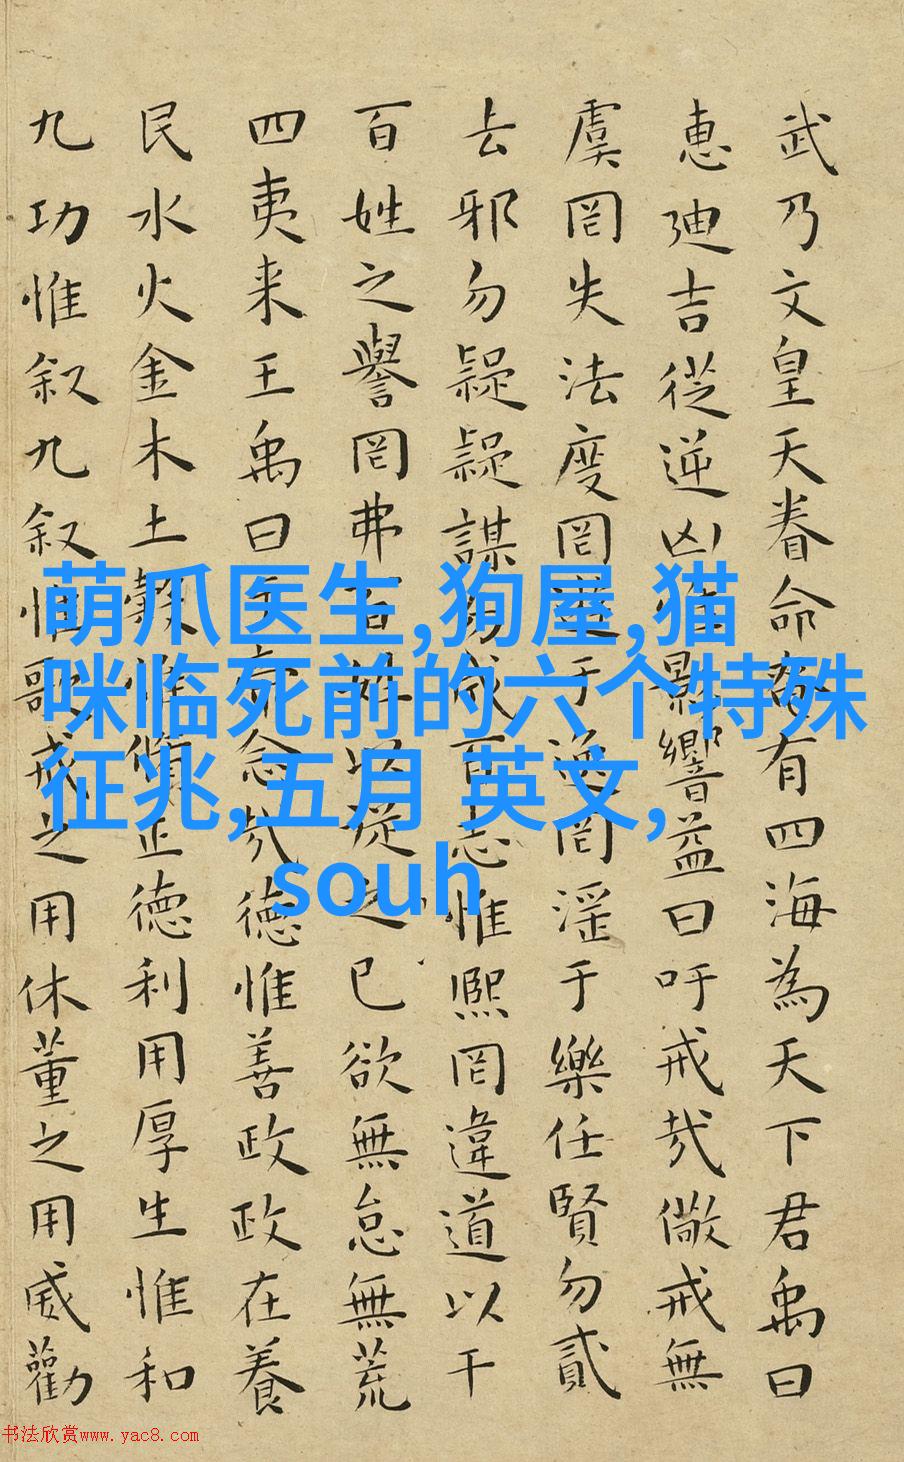 武乃文皇天眷命奄有四海為天下君禹曰
惠迪吉從逆凶惟影響益曰吁戒哉儆戒無
虞罔失法度罔遊于逸罔淫于樂任賢勿貳
去邪勿疑疑謀勿成百志惟熙罔違道以干
百姓之譽罔弗百姓以從之已欲無怠無荒
四夷来王禹曰于帝念哉德惟善政政在養
民水火金木土穀惟脩正德利用厚生惟和
九功惟叙九叙惟歌戒之用休董之用威勸
萌爪医生,狗屋,猫
咪临死前的六个特殊
征兆,五月 英文,
souh
书法欣赏www.yac8.com